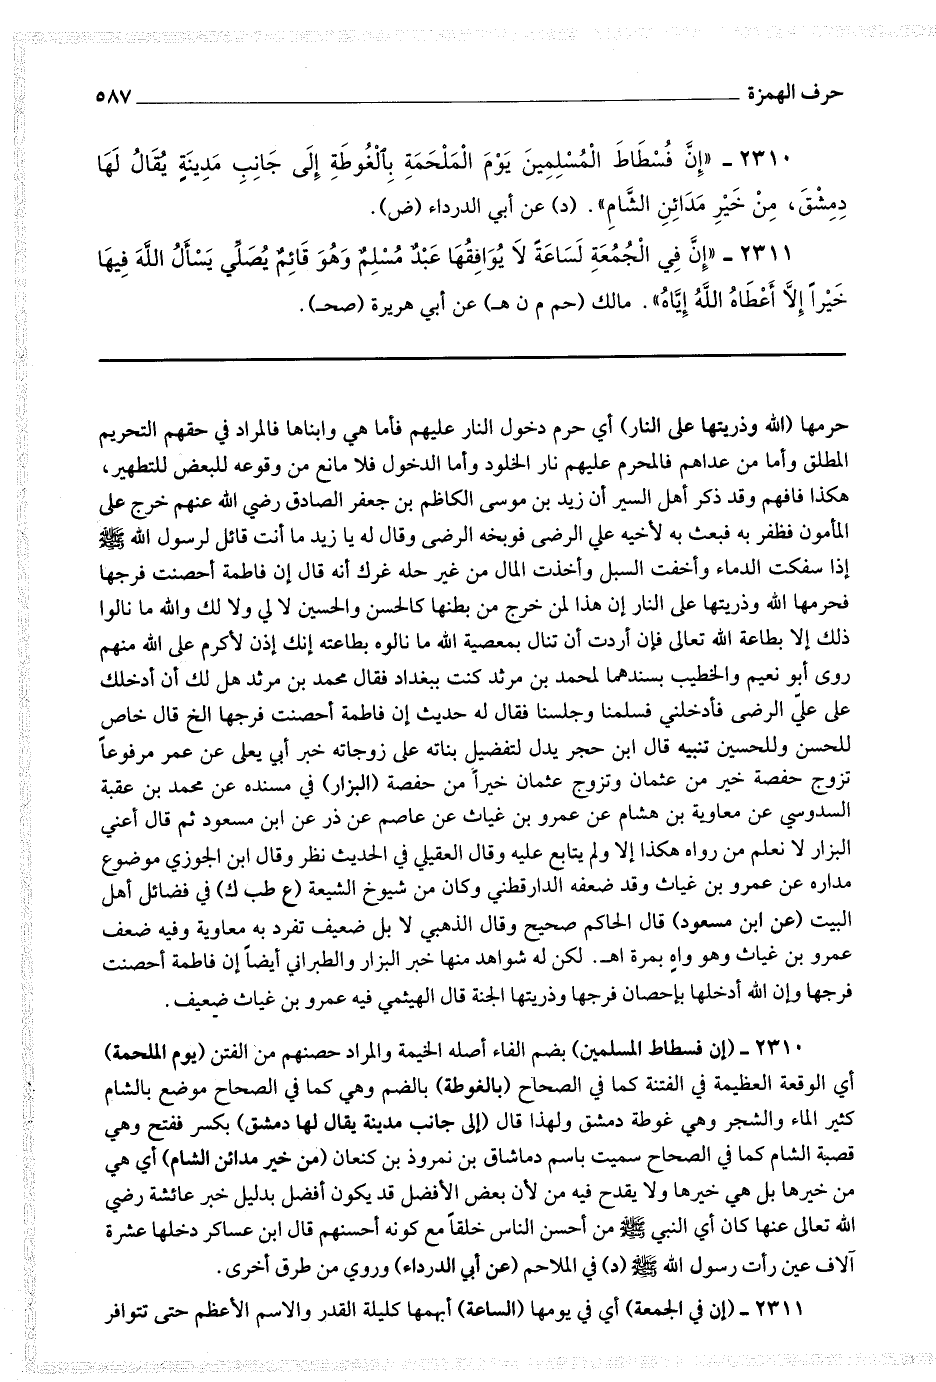 حرف الهمزة ٥٨٧
٢٣١٠ ـ «إِنَّ فُسْطَاطَ الْمُسْلِمِينَ يَوْمَ الْمَلْحَمَةِ بِالْغُوطَةِ إِلَى جَانِبِ مَدِينَةٍ يُقَالُ لَهَا
دِمِشْقَ، مِنْ خَيْرِ مَدَائِنِ الشَّامِ». (د) عن أبي الدرداء (ض).
٢٣١١ ـ «إِنَّ فِي الْجُمُعَةِ لَسَاعَةً لَا يُوَافِقُهَا عَبْدٌ مُسْلِمٌ وَهُوَ قَائِمٌ يُصَلِّي يَسْأَلُ اللَّهَ فِيهَا
خَيْراً إِلَّا أَعْطَاهُ اللَّهُ إِيَّاهُ». مالك (حم م ن هـ) عن أبي هريرة (صحـ).
حرمها (الله وذريتها على النار) أي حرم دخول النار عليهم فأما هي وابناها فالمراد في حقهم التحريم
المطلق وأما من عداهم فالمحرم عليهم نار الخلود وأما الدخول فلا مانع من وقوعه للبعض للتطهير،
هكذا فافهم وقد ذكر أهل السير أن زيد بن موسى الكاظم بن جعفر الصادق رضي الله عنهم خرج على
المأمون فظفر به فبعث به لأخيه علي الرضى فوبخه الرضى وقال له يا زيد ما أنت قائل لرسول الله ﷺ
إذا سفكت الدماء وأخفت السبل وأخذت المال من غير حله غرك أنه قال إن فاطمة أحصنت فرجها
فحرمها الله وذريتها على النار إن هذا لمن خرج من بطنها كالحسن والحسين لا لي ولا لك والله ما نالوا
ذلك إلا بطاعة الله تعالى فإن أردت أن تنال بمعصية الله ما نالوه بطاعته إنك إذن لأكرم على الله منهم
روى أبو نعيم والخطيب بسندهما لمحمد بن مرثد كنت ببغداد فقال محمد بن مرثد هل لك أن أدخلك
على عليّ الرضى فأدخلني فسلمنا وجلسنا فقال له حديث إن فاطمة أحصنت فرجها الخ قال خاص
للحسن وللحسين تنبيه قال ابن حجر يدل لتفضيل بناته على زوجاته خبر أبي يعلى عن عمر مرفوعاً
تزوج حفصة خير من عثمان وتزوج عثمان خيراً من حفصة (البزار) في مسنده عن محمد بن عقبة
السدوسي عن معاوية بن هشام عن عمرو بن غياث عن عاصم عن ذر عن ابن مسعود ثم قال أعني
البزار لا نعلم من رواه هكذا إلا ولم يتابع عليه وقال العقيلي في الحديث نظر وقال ابن الجوزي موضوع
مداره عن عمرو بن غياث وقد ضعفه الدارقطني وكان من شيوخ الشيعة (ع طب ك) في فضائل أهل
البيت (عن ابن مسعود) قال الحاكم صحيح وقال الذهبي لا بل ضعيف تفرد به معاوية وفيه ضعف
عمرو بن غياث وهو واهٍ بمرة اهـ. لكن له شواهد منها خبر البزار والطبراني أيضاً إن فاطمة أحصنت
فرجها وإن الله أدخلها بإحصان فرجها وذريتها الجنة قال الهيثمي فيه عمرو بن غياث ضعيف.
٢٣١٠ ـ (إن فسطاط المسلمين) بضم الفاء أصله الخيمة والمراد حصنهم من الفتن (يوم الملحمة)
أي الوقعة العظيمة في الفتنة كما في الصحاح (بالغوطة) بالضم وهي كما في الصحاح موضع بالشام
كثير الماء والشجر وهي غوطة دمشق ولهذا قال (إلى جانب مدينة يقال لها دمشق) بكسر ففتح وهي
قصبة الشام كما في الصحاح سميت باسم دماشاق بن نمروذ بن كنعان (من خير مدائن الشام) أي هي
من خيرها بل هي خيرها ولا يقدح فيه من لأن بعض الأفضل قد يكون أفضل بدليل خبر عائشة رضي
الله تعالى عنها كان أي النبي ﷺ من أحسن الناس خلقاً مع كونه أحسنهم قال ابن عساكر دخلها عشرة
آلاف عين رأت رسول الله ﷺ (د) في الملاحم (عن أبي الدرداء) وروي من طرق أخرى.
٢٣١١ ـ (إن في الجمعة) أي في يومها (الساعة) أبهمها كليلة القدر والاسم الأعظم حتى تتوافر